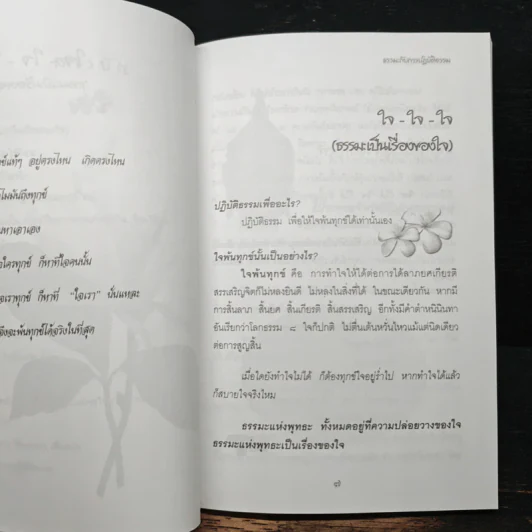 ทุกข์แท้ๆ อยู่ตรงไหน เกิดตรงไหน
ใครทุกข์ ก็หาที่ใจคนนั้น
เราทุกข์ ก็หาที่ "ใจเรา" นั่นแหละ
จึงจะพ้นทุกข์ได้จริงในที่สุด
ธรรมะกับการปฏิบัติธรรม
ใจ - ใจ - ใจ
(ธรรมะเป็นเรื่องของใจ)
ปฏิบัติธรรมเพื่ออะไร?
ปฏิบัติธรรม เพื่อให้ใจพ้นทุกข์ได้เท่านั้นเอง
ใจพ้นทุกข์นั้นเป็นอย่างไร?
ใจพ้นทุกข์ คือ การทำใจให้ได้ต่อการได้ลาภยศเกียรติ
สรรเสริญจิตก็ไม่หลงยินดี ไม่หลงในสิ่งที่ได้ ในขณะเดียวกัน หากมี
การสิ้นลาภ สิ้นยศ สิ้นเกียรติ สิ้นสรรเสริญ อีกทั้งมีคำตำหนินินทา
อันเรียกว่าโลกธรรม ๘ ใจก็ปกติ ไม่ตื่นเต้นหวั่นไหวแม้แต่นิดเดียว
ต่อการสูญสิ้น
เมื่อใดยังทำใจไม่ได้ ก็ต้องทุกข์ใจอยู่ร่ำไป หากทำใจได้แล้ว
ก็สบายใจจริงไหม
ธรรมะแห่งพุทธะ ทั้งหมดอยู่ที่ความปล่อยวางของใจ
ธรรมะแห่งพุทธะเป็นเรื่องของใจ
๗